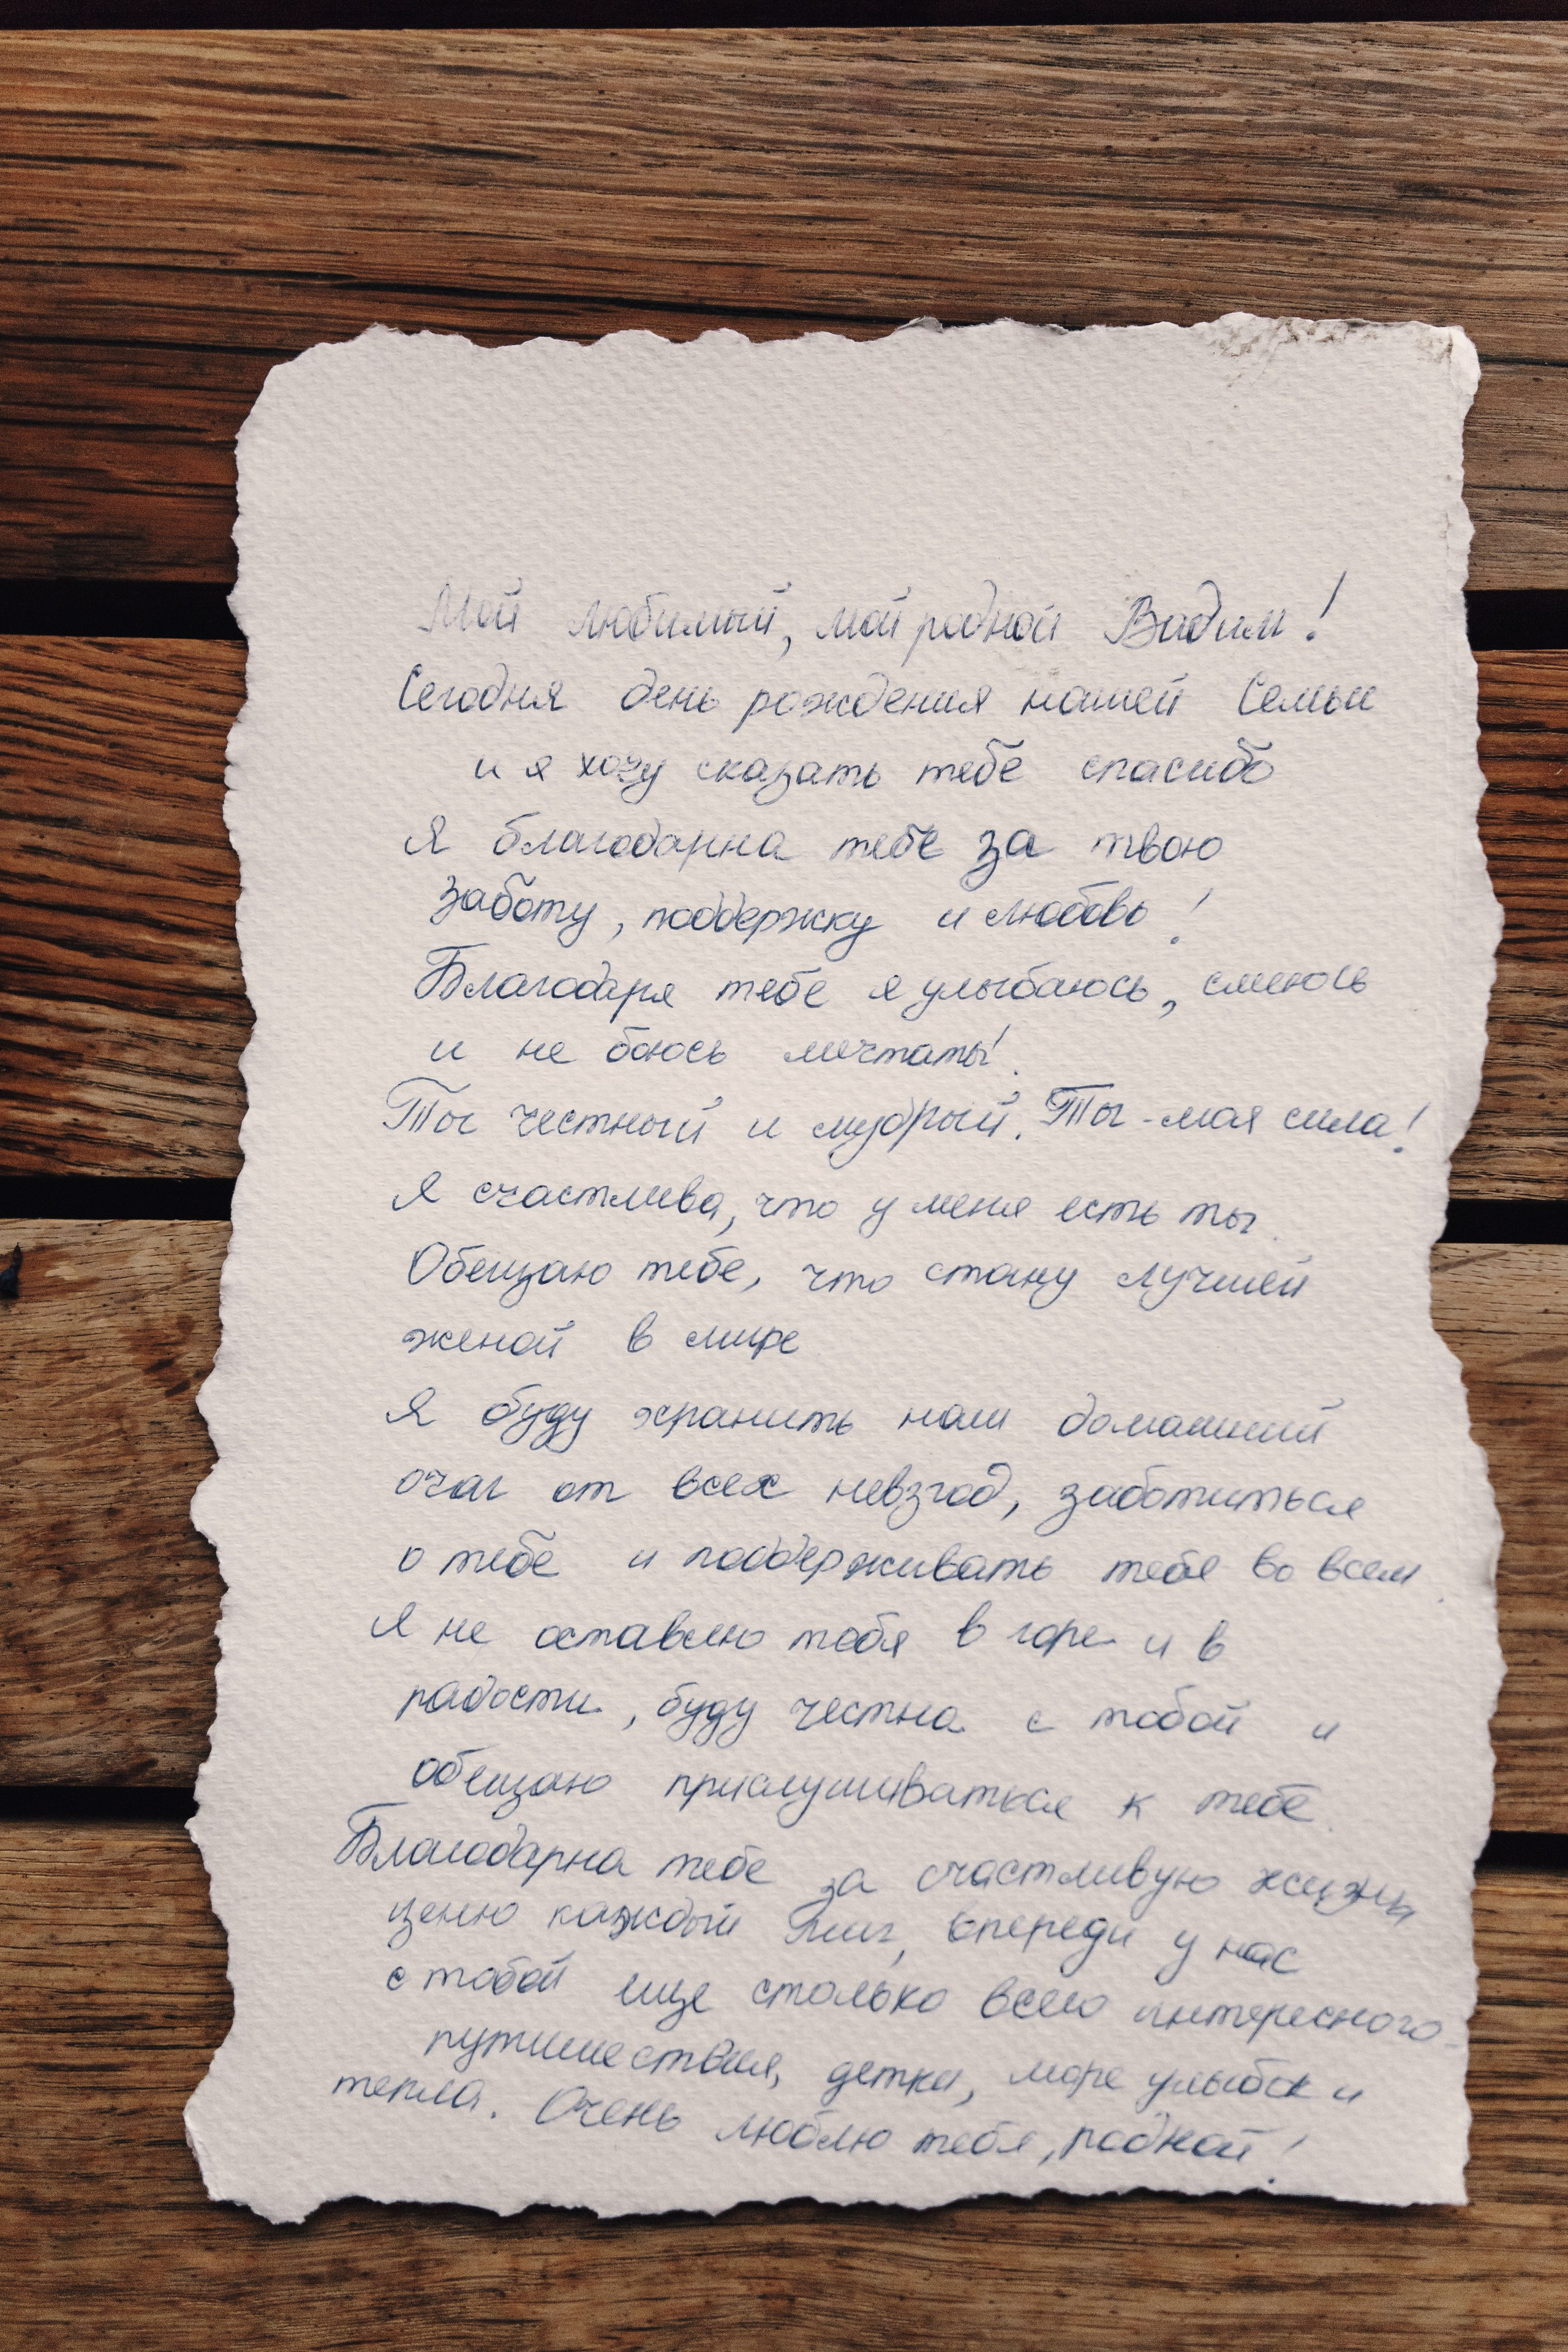 Мой любимый, мой родной Вадим!
Сегодня день рождения нашей Семьи
и я хочу сказать тебе спасибо
Я благодарна тебе за твою
заботу, поддержку и любовь!
Благодаря тебе я улыбаюсь, смеюсь
и не боюсь мечтать!
Ты честный и мудрый. Ты - моя сила!
Я счастлива, что у меня есть ты.
Обещаю тебе, что стану лучшей
женой в мире
Я буду хранить наш домашний
очаг от всех невзгод, заботиться
о тебе и поддерживать тебя во всем.
Я не оставлю тебя в горе и в
радости, буду честна с тобой и
обещаю прислушиваться к тебе.
Благодарна тебе за счастливую жизнь
ценю каждый миг, впереди у нас
с тобой еще столько всего интересного
путешествия, детки, море улыбок и
тепла. Очень люблю тебя, родной!